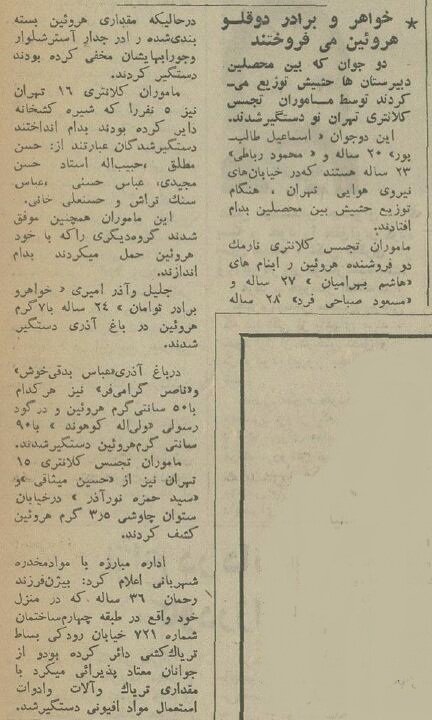 * خواهر و برادر دوقلو
هروئین می فروختند
دو جوان که بین محصلین
دبیرستان ها حشیش توزیع می‌ـ
کردند توسط مـاموران تجسس
کلانتری تهران نو دستگیرشدند.
این دوجوان « اسماعیل طالب‍ـ
پور» ۲۰ ساله و « محمود رباطی»
۲۳ ساله هستند که‌در خیابان‌های
نیروی هوایی تهران ، هنگام
توزیع حشیش بین محصلین بدام
افتادند.
ماموران تجسس کلانتری نارمک
دو فروشنده هروئین را بنام های
«هاشم بهرامیان » ۲۷ ساله و
«مسعود صباحی فرد» ۲۸ ساله
درحالیکه مقداری هروئین بسته
بندی‌شده را در جدار آسترشلوار
وجورابهایشان مخفی کرده بودند
دستگیر کردند.
ماموران کلانتری ۱۶ تهران
نیز ۵ نفررا که شیره کشخانه
دایر کرده بودند بدام انداختند
دستگیرشدگان عبارتند از: حسن
مطلق ،حبیب‌اله استاد حسن
مجیدی، عباس حسنی ،عباس
سنك تراش و حسنعلی خانی.
این ماموران همچنین موفق
شدند گروه‌دیگری راکه با خود
هروئین حمل میکردند بدام
اندازند.
جلیل وآذر امیری « خواهرو
برادر توامان » ۲۴ ساله با۷گرم
هروئین در باغ آذری دستگیر
شدند.
درباغ آذری«عباس بدقی‌خوش»
و«ناصر گرامی‌فر» نیز هرکدام
با۵۰ سانتی‌گرم هروئین و درگود
رسولی «ولی‌اله کوهوند » با۹۰
سانتی گرم‌هروئین دستگیرشدند.
ماموران تجسس کلانتری ۱۵
تهران نیز از «حسین میثاقی »و
«سید حمزه نورآذر » درخیابان
ستوان چاوشی ۳٫۵ گرم هروئین
کشف کردند.
اداره مبارزه با موادمخدره
شهربانی اعلام کرد: بیژن‌فرزند
رحمان ۳۶ ساله که در منزل
خود واقع در طبقه چهارم‌ساختمان
شماره ۷۲۱ خیابان رودکی بساط
تریاك‌کشی دائر کرده بودو از
جوانان معتاد پذیرائی میکرد با
مقداری تریاك وآلات وادوات
استعمال مواد افیونی دستگیرشد.